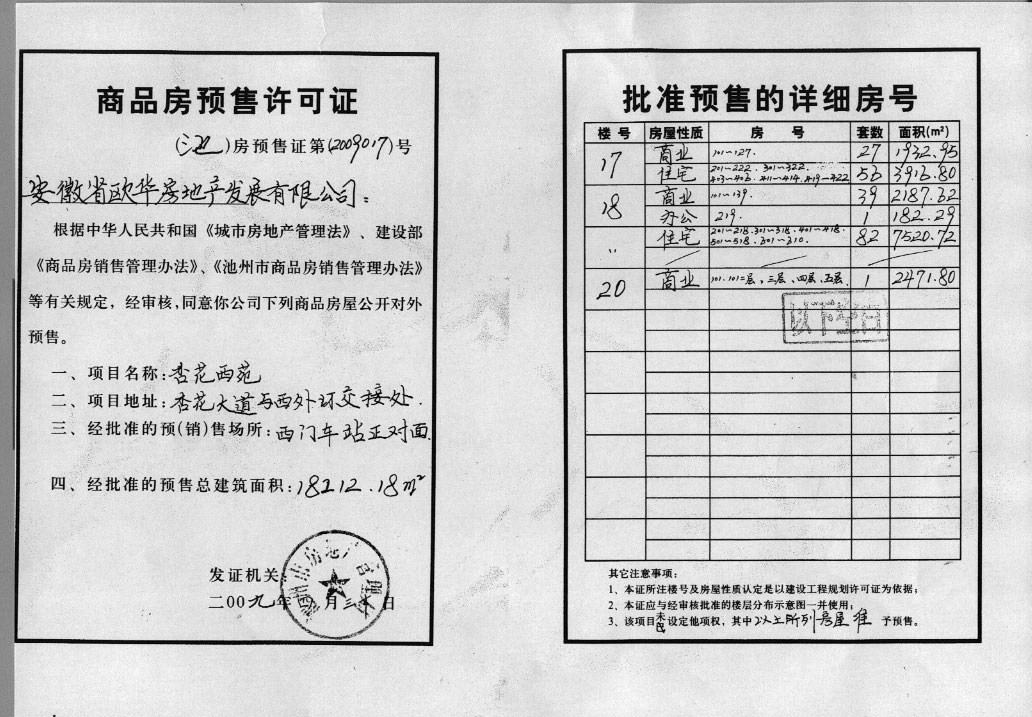 商品房预售许可证
(池)房预售证第(2009017)号
安徽省欧华房地产发展有限公司:
根据中华人民共和国《城市房地产管理法》、建设部
《商品房销售管理办法》、《池州市商品房销售管理办法》
等有关规定,经审核,同意你公司下列商品房屋公开对外
预售。
一、项目名称:杏花西苑
二、项目地址:杏花大道与西外环交接处.
三、经批准的预(销)售场所:西门车站正对面.
四、经批准的预售总建筑面积:18212.18m²
发证机关:
二00九年 月三十日
批准预售的详细房号
楼号 房屋性质 房号 套数 面积(m²)
17 商业 101~127. 27 1932.95
住宅 201~222. 301~322. 403~406. 411~414. 419~422 56 3916.80
18 商业 101~139. 39 2187.62
办公 219. 1 182.29
〃 住宅 201~218. 301~318. 401~418. 501~518. 301~310. 82 7520.72
20 商业 101. 101二层, 三层、四层、五层. 1 2471.80
以下空白
其它注意事项:
1、本证所注楼号及房屋性质认定是以建设工程规划许可证为依据;
2、本证应与经审核批准的楼层分布示意图一并使用;
3、该项目未设定他项权,其中以上所列房屋准予预售。